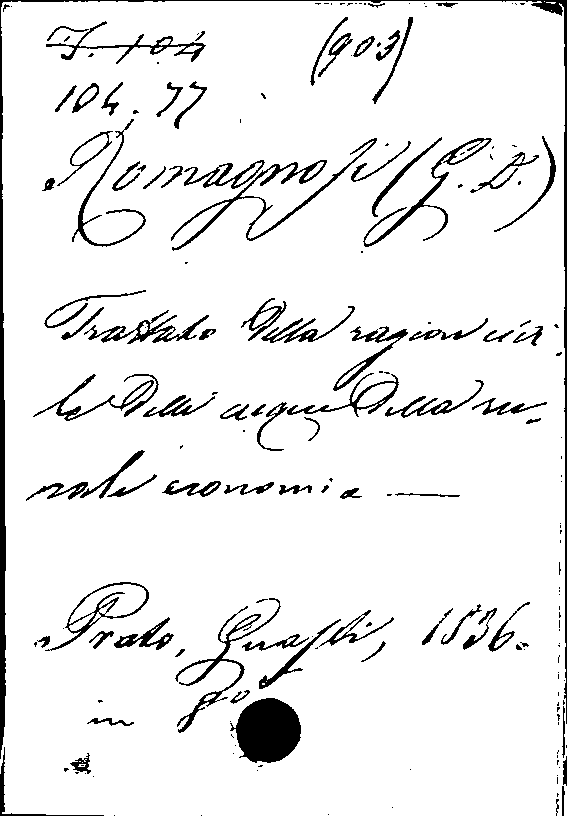 J. 104 (903)
104. 77
Romagnosi (G. D.)
Trattato della ragion civi-
le delle acque della ru-
rale economia —
Prato, Guasti, 1836.
in 8º